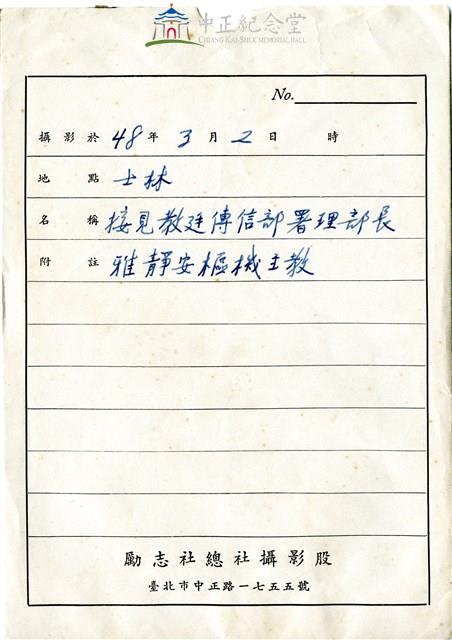 中正紀念堂
CHIANG KAI-SHEK MEMORIAL HALL
No.
攝影於 48 年 3 月 2 日 時
地點 士林
名稱 接見教廷傳信部署理部長
附註 雅靜安樞機主教
勵志社總社攝影股
臺北市中正路一七五五號